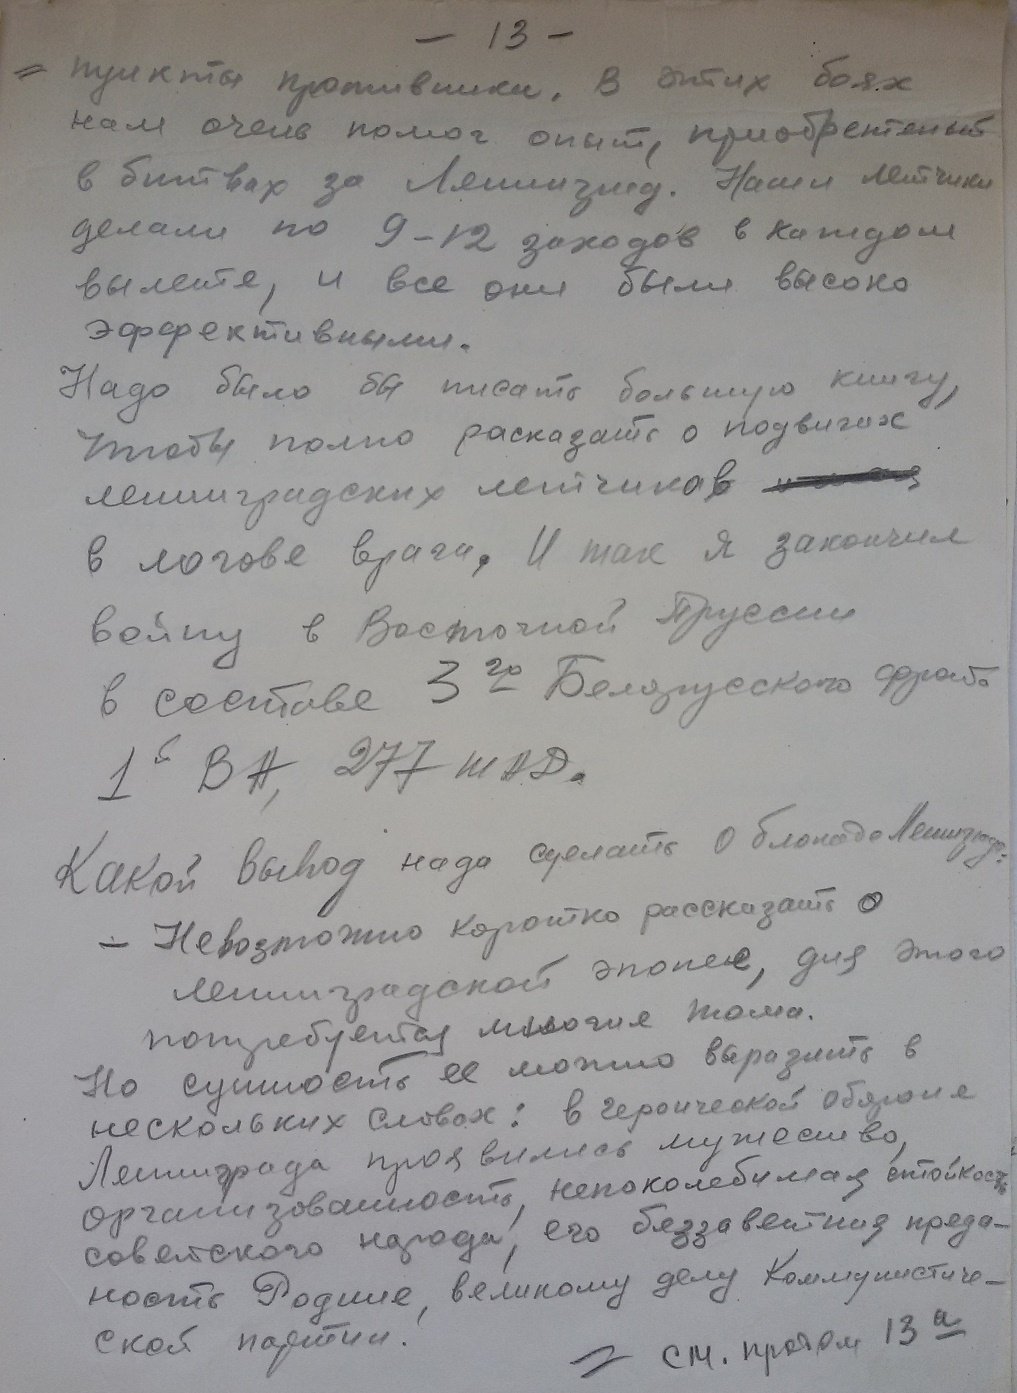 - 13 -
= пункты противника. В этих боях
нам очень помог опыт, приобретеный
в битвах за Ленинград. Наши летчики
делали по 9-12 заходов в каждом
вылете, и все они были высоко
эффективными.
Надо было бы писать большую книгу,
чтобы полно расказать о подвигах
ленинградских летчиков
в логове врага. И так я закончил
войну в Восточной Пруссии
в составе 3го Белорусского фронта
1й ВА, 277 шАД.
Какой вывод надо сделать о блокаде Ленинграда:
- Невозможно коротко рассказать о
ленинградской эпопее, для этого
потребуется многие тома.
Но сущность ее можно выразить в
нескольких словах: в героической обороне
Ленинграда проявились мужество,
организованность, непоколебимая стойкость
советского народа, его беззаветная преда-
ность Родине, великому делу Коммунистиче-
ской партии.
= см. протом 13а